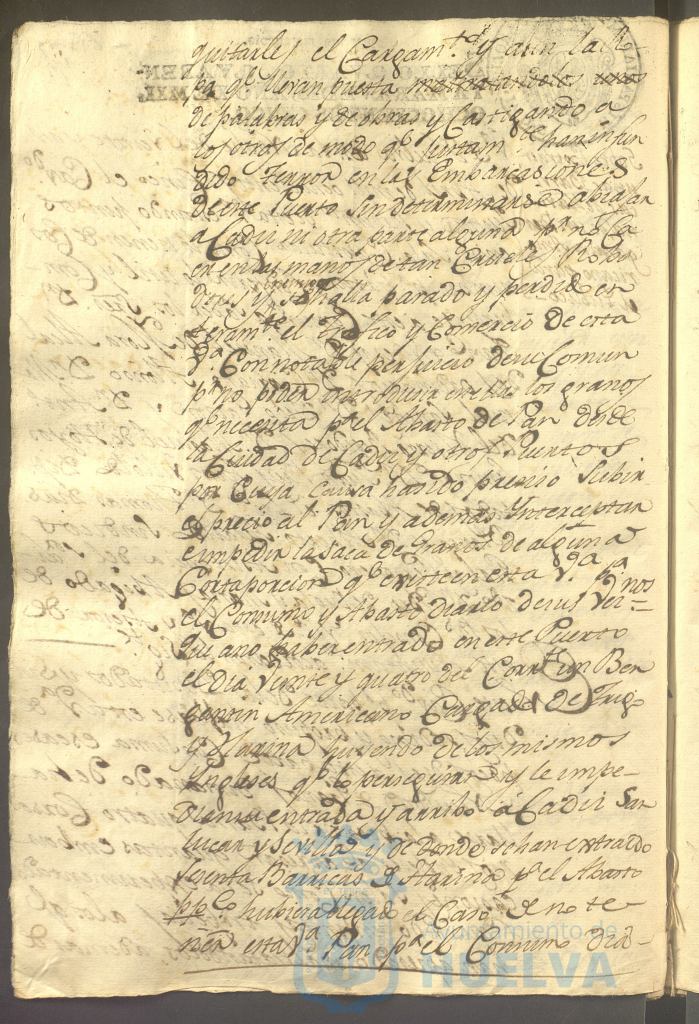 quitarles el Cargam.to y aun la R.
pa q.e llevan puesta maltratandolos unos
de palabras y de obras y Castigando a
los otros de modo q.e juntam.te han infun
dido terror en las Embarcaciones
de este Puerto sin determinarse a biajar
a Cadiz ni otra parte alguna p.a no ca
er en las manos de tan Crueles Roba
dores y se halla parado y perdido en
teram.te el Trafico y Comercio de esta
V.a Con notable perjuicio de su Comun
p.r no poder introducir en ella los granos
q.e necesita p.a el Abasto de Pan desde
la Ciudad de Cadiz y otros Puertos
por Cuya Causa ha sido preciso Subir
el precio al Pan y ademas Ynterceptar
e impedir la saca de Granos de alguna
Corta porcion q.e existe en esta V.a p.a
el Consumo y Abasto diario de sus Vez.nos
Que a no haber entrado en este Puerto
el dia Veinte y quatro del Corr.te un Ber
gantin Americano Cargado de Trigo
y Harina huyendo de los mismos
Yngleses q.e lo perseguian y le impe-
dian su entrada y arribo á Cadiz San
lucar y Sevilla y de donde se han extraido
Sesenta Barricas de Harina p.a el Abasto
pp.co hubiera llegado el Caso de no te-
ner esta V.a Pan p.a el Consumo dia-
Ayuntamiento de
HUELVA